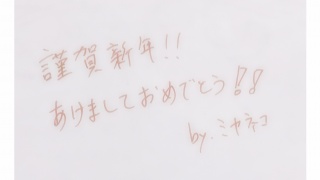 謹賀新年!!
あけましておめでとう!!
by.ミヤネコ